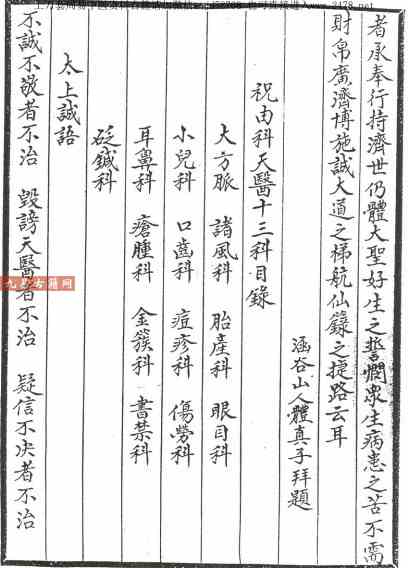 者承奉行持濟世仍體大聖好生之誓憫衆生病患之苦不需
財帛廣濟博施誠大道之梯航仙籙之捷路云耳
涵谷山人體真子拜題
祝由科天醫十三科目錄
大方脈 諸風科 胎產科 眼目科
小兒科 口齒科 痘疹科 傷勞科
耳鼻科 瘡腫科 金簇科 書禁科
砭鍼科
太上誠語
不誠不敬者不治 毀謗天醫者不治 疑信不决者不治